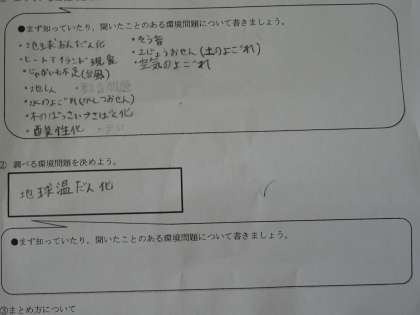 ●まず知っていたり、聞いたことのある環境問題について書きましょう。
・地球おんだん化
・そう音
・ヒートアイランド現象
・土じょうおせん(土のよごれ)
・じゃがいも不足(台風)
・空気のよごれ
・地しん
・水のよごれ
・木のばっさい さばく化
・酸性化
② 調べる環境問題を決めよう。
地球温だん化
●まず知っていたり、聞いたことのある環境問題について書きましょう。
③まとめ方について